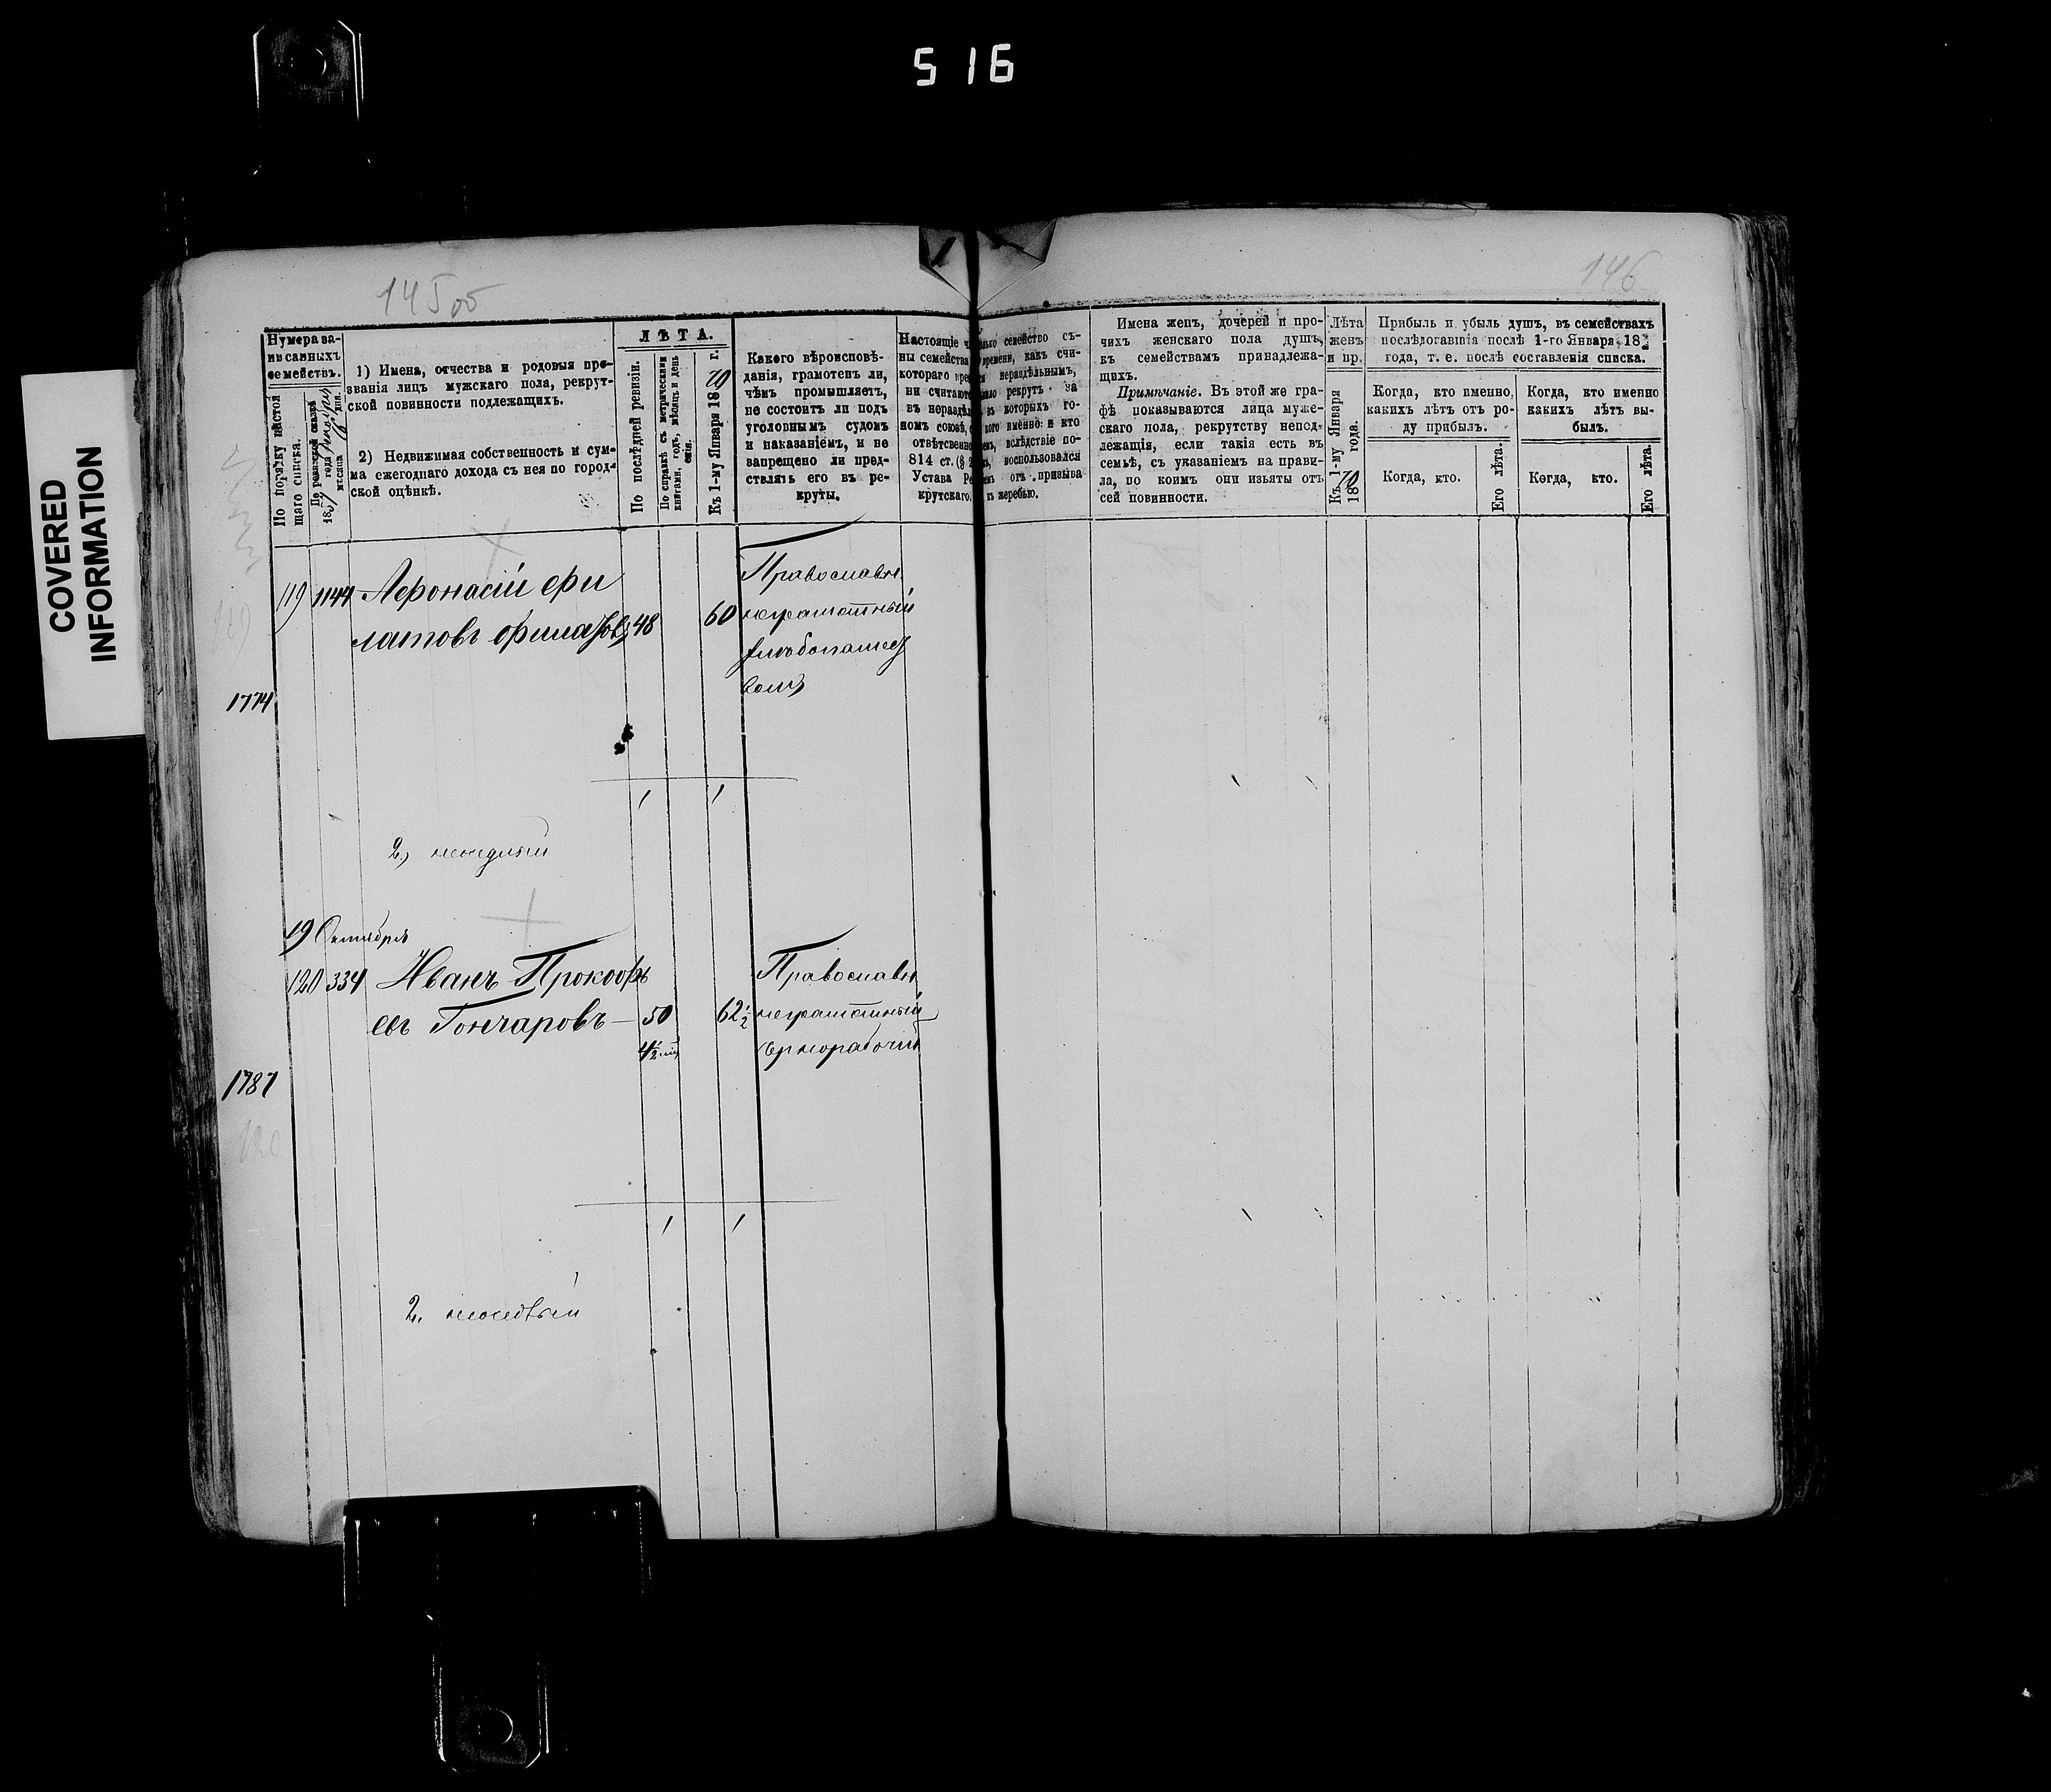 516
COVERED
INFORMATION
145об
146
Нумера за-
писанныхъ
семействъ.
По порядку настоя
щаго списка.
По ревизской сказкѣ
18 года
мѣсяца дня.
1) Имена, отчества и родовыя про-
званія лицъ мужскаго пола, рекрут-
ской повинности подлежащихъ.
2) Недвижимая собственность и сум-
ма ежегоднаго дохода съ нея по город-
ской оцѣнкѣ.
ЛѢТА.
По послѣдней ревизіи.
По справкѣ съ метрическими
книгами, годъ, мѣсяцъ и день
Къ 1-му Января 1870 г.
Какого вѣроисповѣ-
данія, грамотенъ ли,
чѣмъ промышляетъ,
не состоитъ ли подъ
уголовнымъ судомъ
и наказаніемъ, и не
запрещено ли пред-
ставлять его въ ре-
круты.
Настоящіе
ны семейства
котораго
ни считают
въ нераздѣл
номъ союзѣ,
отвѣтсвенно
814 ст. (§
Устава Ре
крутскаго.
семейство съ-
времени, какъ счи-
нераздѣльнымъ,
рекрутъ за
которыхъ го-
именно: и кто
вслѣдствіе по-
воспользовался
отъ призыва
жеребью.
Имена женъ, дочерей и про-
чихъ женскаго пола душъ,
къ семействамъ принадлежа-
щихъ.
Примѣчаніе. Въ этой же гра-
фѣ показываются лица муже-
скаго пола, рекрутству непод-
лежащія, если такія есть въ
семьѣ, съ указаніемъ на прави-
ла, по коимъ они изъяты отъ
сей повинности.
Лѣта
женъ
и пр.
Къ 1-му Января
1870 года.
Прибыль и убыль душъ, въ семействахъ
послѣдовавшія послѣ 1-го Января 18
года, т. е. послѣ составленія списка.
Когда, кто именно,
какихъ лѣтъ отъ ро-
ду прибылъ.
Когда, кто именно
какихъ лѣтъ вы-
былъ.
Когда, кто.
Его лѣта.
Когда, кто.
Его лѣта.
119 1144 Афонасій Фи
латовъ 48 60
Православн.
неграмотный
1774
1 1
19 Октября
120 334 Иванъ Прокофь
евъ Гончаровъ — 50 62½
Православн.
неграмотный
чернорабочій
1787
120
1 1